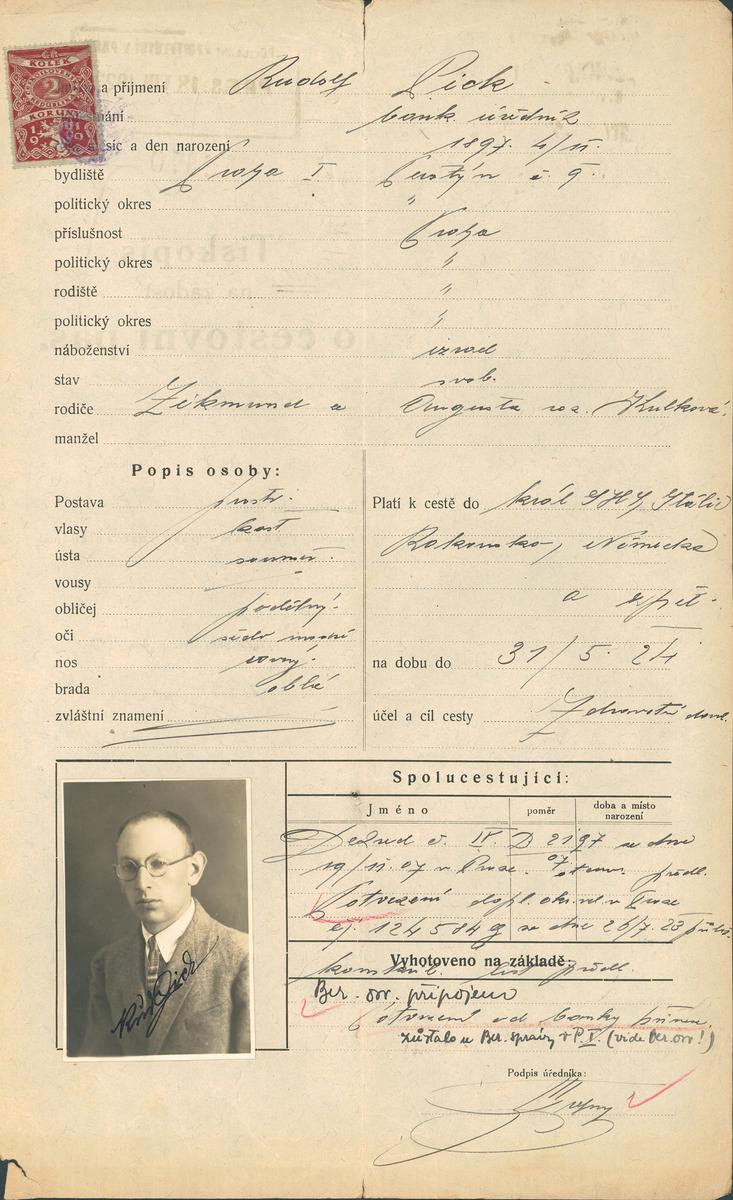 KOLEK
2
KORUNY
a příjmení Rudolf Pick
bank. úředník
měsíc a den narození 1897. 4/11.
bydliště Praha I Perštýn č. 9.
politický okres "
příslušnost Praha
politický okres "
rodiště "
politický okres "
náboženství israel
stav svob.
rodiče Zikmund a Augusta roz. Kulková.
manžel
Popis osoby:
Postava prostř.
vlasy kašt
ústa souměr.
vousy
obličej podélný.
oči šedo modré
nos rovný.
brada oblá
zvláštní znamení
Platí k cestě do král SHS, Itálie
Rakousko, Německo
a zpět.
na dobu do 31/5. 24
účel a cíl cesty Zdravotní dovol.
Spolucestující:
Jméno
poměr
doba a místo narození
č. IV. D 2197 ze dne
19/11. 07 v Praze.
Potvrzení dopl. okr. vel. v Praze
čj. 124584 ze dne 26/7. 23
Vyhotoveno na základě:
Ber. ov. připojeno
Potvrzení od banky
zůstalo u Ber. správy v P. V. (vide Ber. ov!)
Podpis úředníka:
Rud Pick